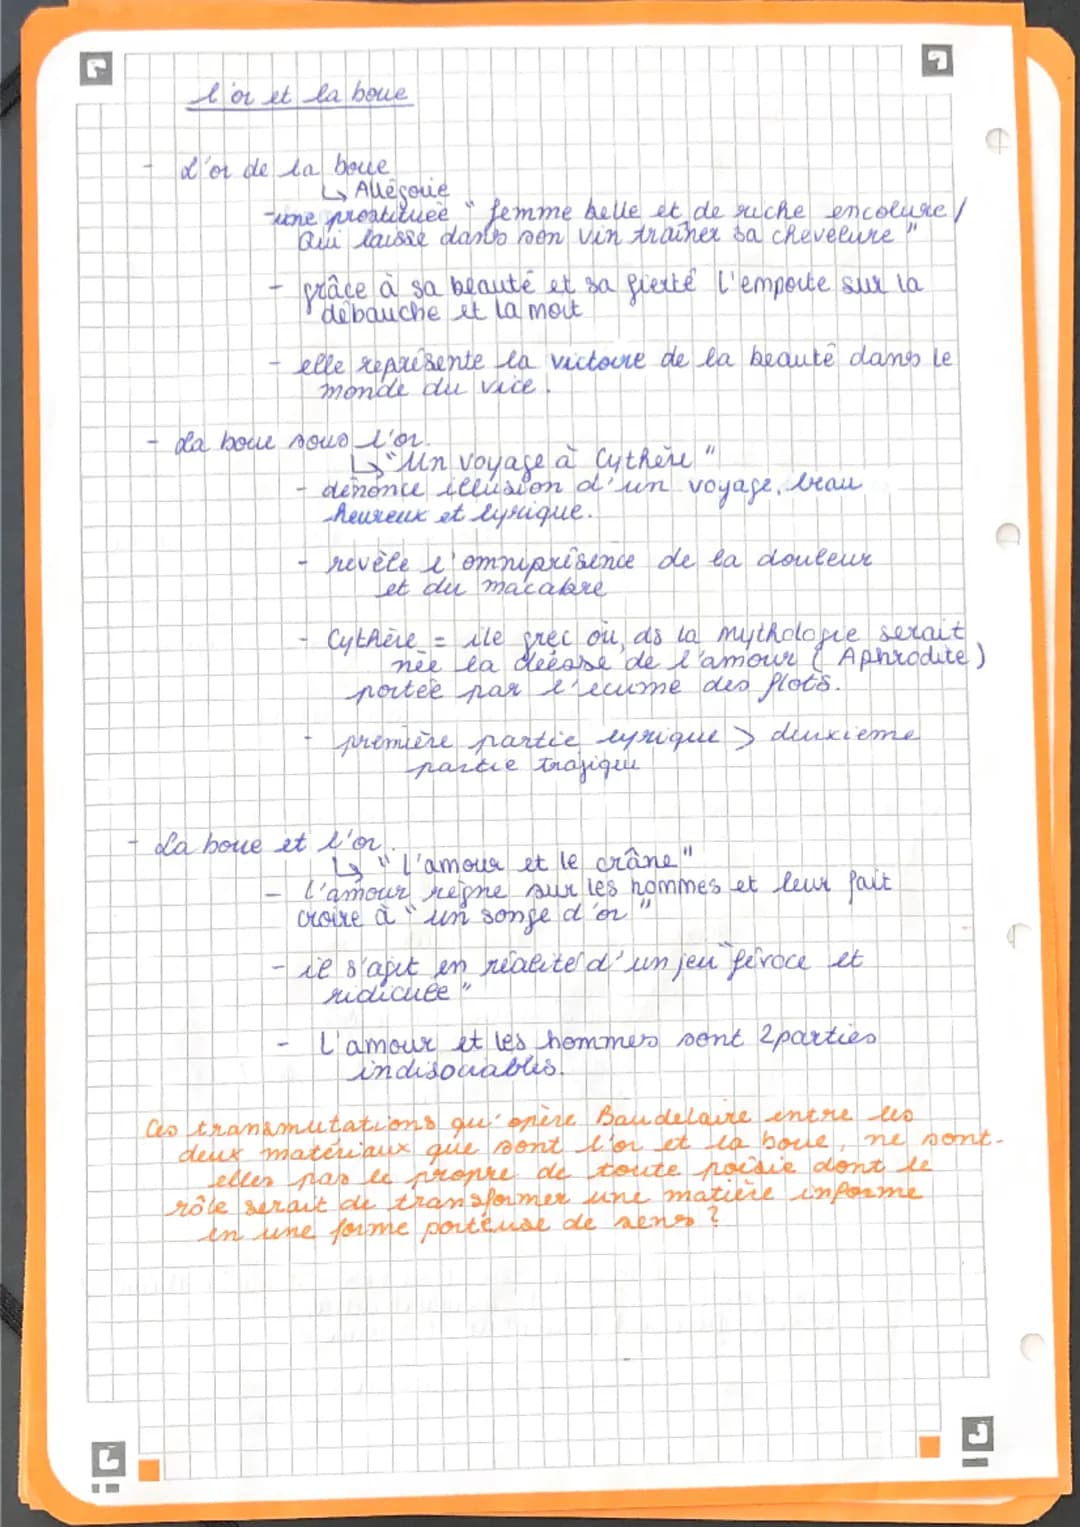 l'or et la boue
- L'or de la boue
↳ Allégorie
- une prostituée " femme belle et de riche encolure /
Qui laisse dans son vin traîner sa chevelure "
- grâce à sa beauté et sa fierté l'emporte sur la
débauche et la mort
- elle représente la victoire de la beauté dans le
monde du vice.
- La boue sous l'or.
↳ "Un voyage à Cythère"
- dénonce illusion d'un voyage, beau
heureux et lyrique.
- revèle l'omniprésence de la douleur
et du macabre
- Cythère = île grec où, ds la mythologie serait
née la déesse de l'amour ( Aphrodite )
portée par l'écume des flots.
- première partie lyrique > deuxieme
partie tragique
- La boue et l'or.
↳ " l'amour et le crâne"
- l'amour règne sur les hommes et leur fait
croire à " un songe d'or "
- il s'agit en réalité d'un jeu "féroce et
ridicule "
- L'amour et les hommes sont 2 parties
indisouables.
Ces transmutations qu'opère Baudelaire entre les
deux matériaux que sont l'or et la boue, ne sont-
elles pas le propre de toute poésie dont le
rôle serait de transformer une matière informe
en une forme porteuse de sens ?